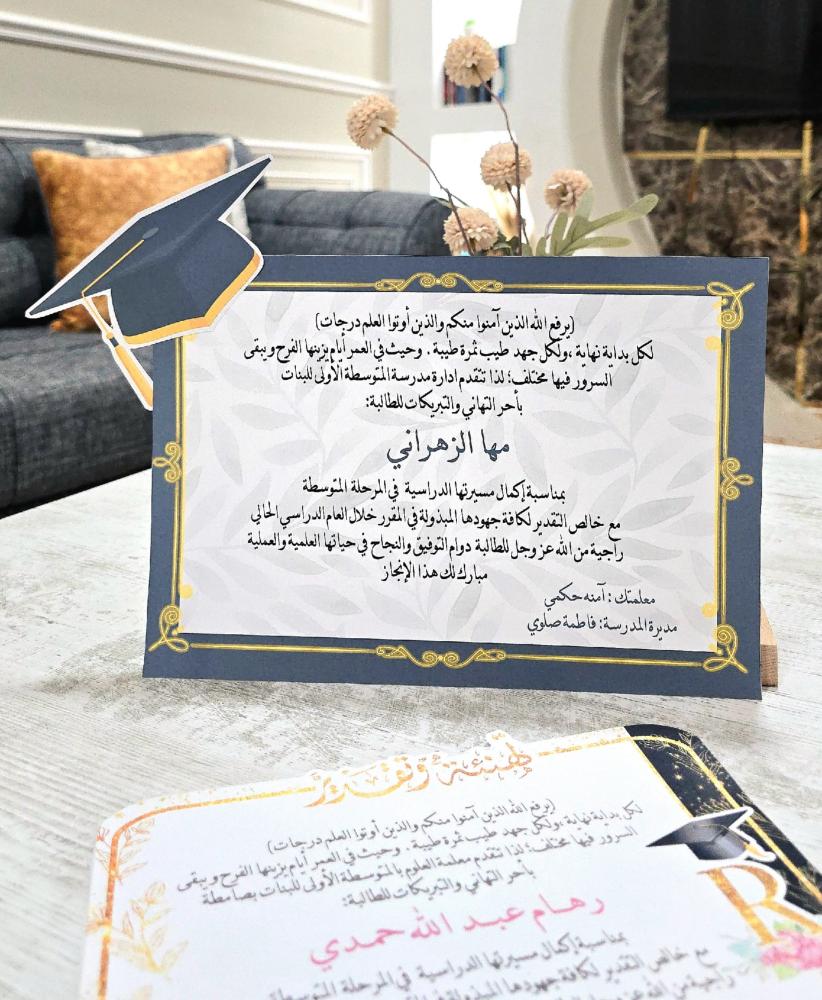 (يرفع الله الذين آمنوا منكم والذين أوتوا العلم درجات)
لكل بداية نهاية ،ولكل جهد طيب ثمرة طيبة . وحيث في العمر أيام يزينها الفرح ويبقى
السرور فيها مختلف؛ لذا تتقدم إدارة مدرسة المتوسطة الأولى للبنات
بأحر التهاني والتبريكات للطالبة:
مها الزهراني
بمناسبة إكمال مسيرتها الدراسية في المرحلة المتوسطة
مع خالص التقدير لكافة جهودها المبذولة في المقرر خلال العام الدراسي الحالي
راجية من الله عز وجل للطالبة دوام التوفيق والنجاح في حياتها العلمية والعملية
مبارك لك هذا الإنجاز
معلمتك : آمنه حكمي
مديرة المدرسة: فاطمة صلوي
تهنئة وتقدير
(يرفع الله الذين آمنوا منكم والذين أوتوا العلم درجات)
لكل بداية نهاية ،ولكل جهد طيب ثمرة طيبة . وحيث في العمر أيام يزينها الفرح ويبقى
السرور فيها مختلف؛ لذا تتقدم معلمة العلوم بالمتوسطة الأولى للبنات بصامطة
بأحر التهاني والتبريكات للطالبة:
رهام عبد الله حمدي
بمناسبة إكمال مسيرتها الدراسية في المرحلة المتوسطة
مع خالص التقدير لكافة جهودها المبذولة في
راجية من الله عز
R